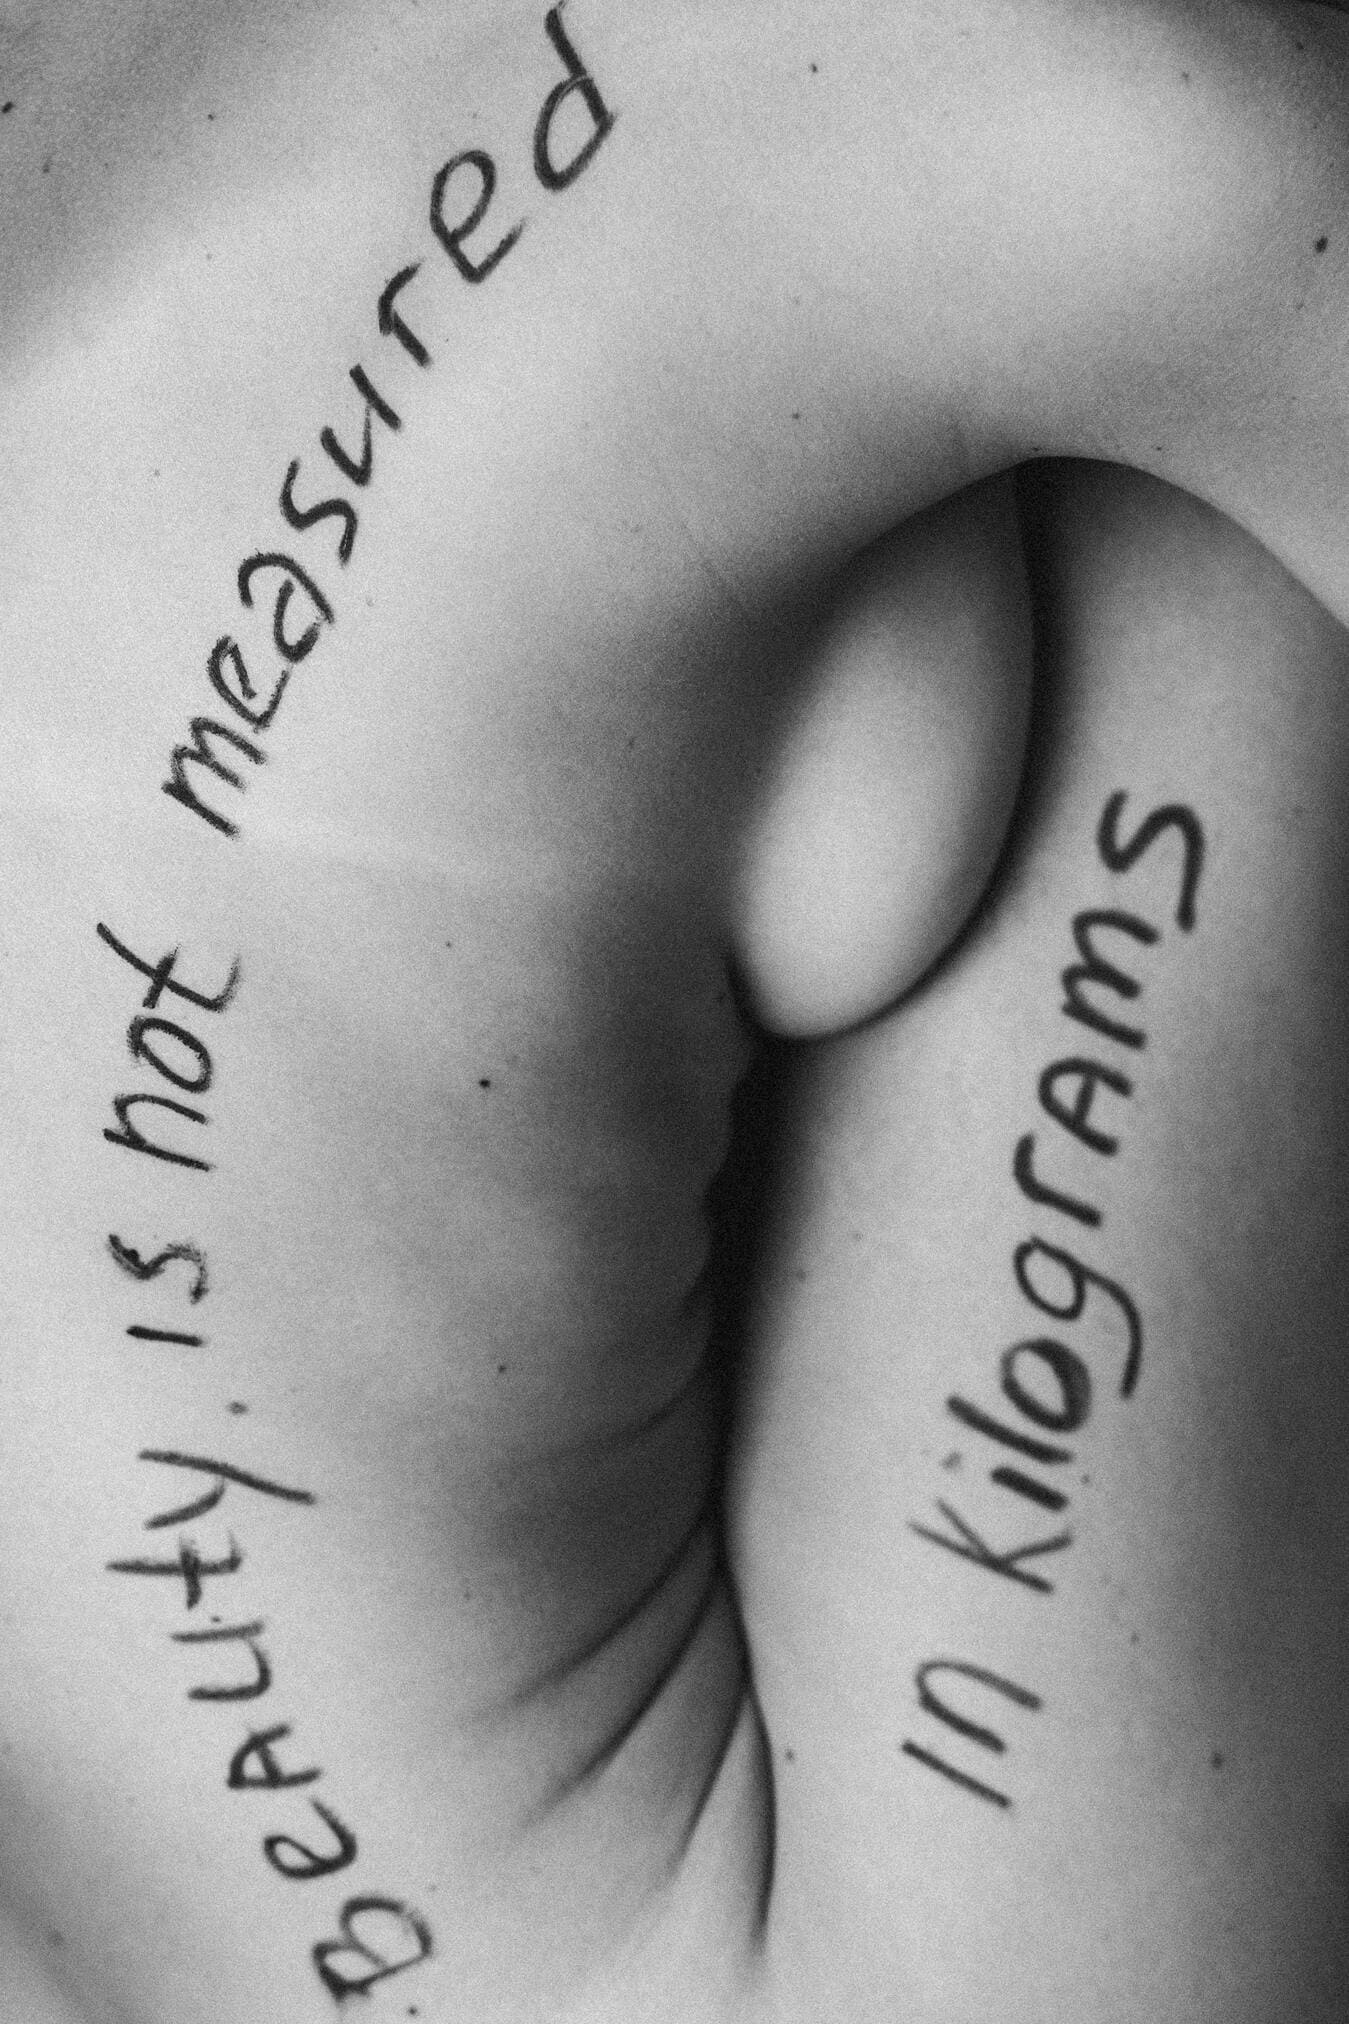 BeAuty is not measured
in kilogrAms